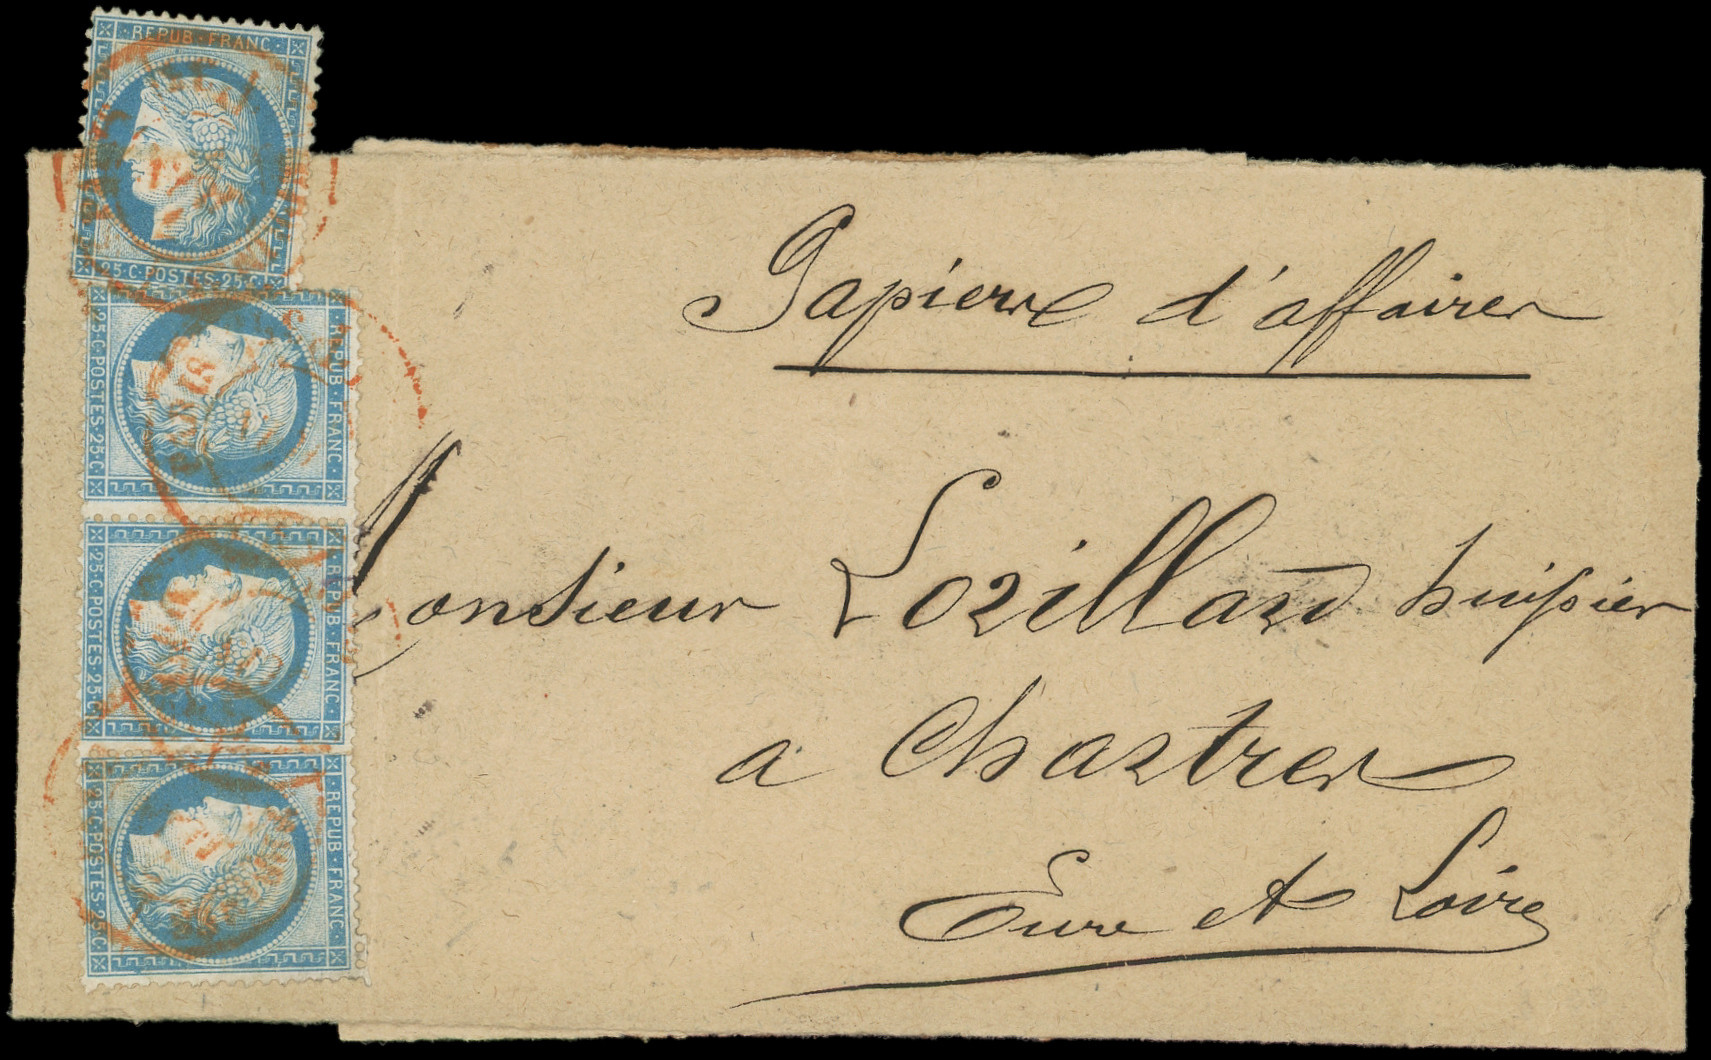 REPUB·FRANC·
25·C·POSTES·25·C·
REPUB·FRANC·
25·C·POSTES·25·C·
REPUB·FRANC·
25·C·POSTES·25·C·
REPUB·FRANC·
25·C·POSTES·25·C·
Papiers d'affaires
Monsieur Lozillard huissier
a Chartres
Eure et Loire